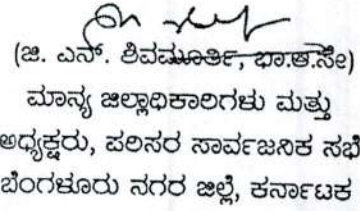 (ಜಿ. ಎನ್. ಶಿವಮೂರ್ತಿ, ಭಾ.ಆ.ಸೇ)
ಮಾನ್ಯ ಜಿಲ್ಲಾಧಿಕಾರಿಗಳು ಮತ್ತು
ಅಧ್ಯಕ್ಷರು, ಪರಿಸರ ಸಾರ್ವಜನಿಕ ಸಭೆ
ಬೆಂಗಳೂರು ನಗರ ಜಿಲ್ಲೆ, ಕರ್ನಾಟಕ